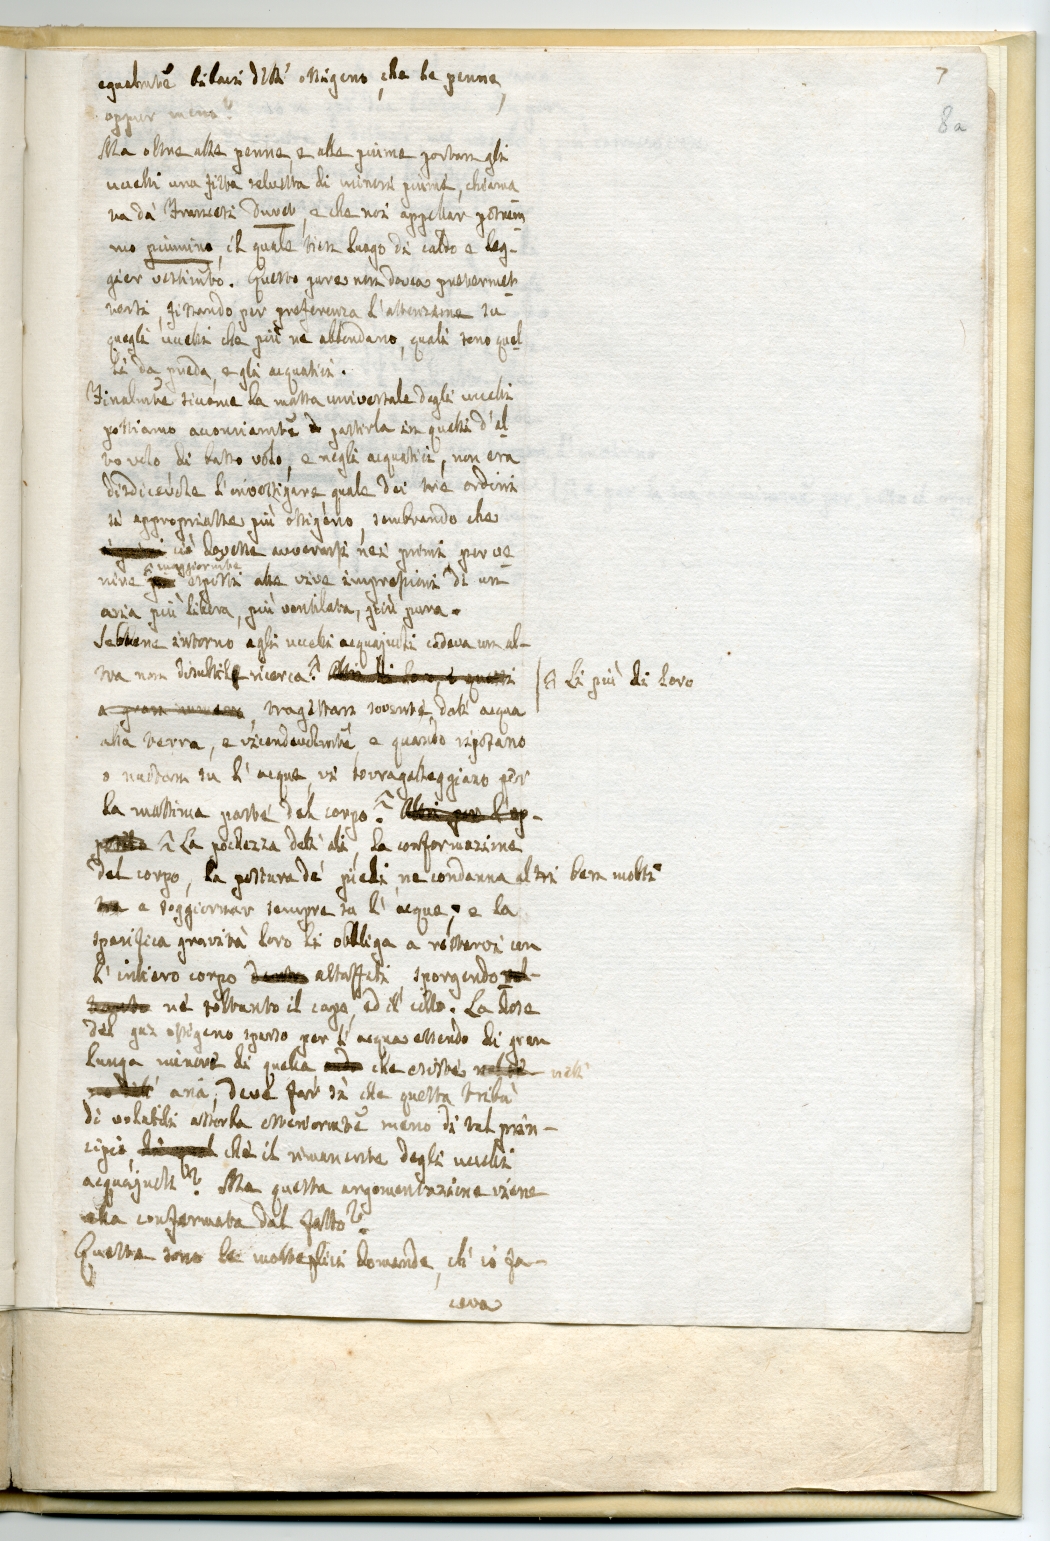 7
8a
egualmte bibaci dell' ossigeno, che le penne,
oppur meno?
Ma oltre alle penne, e alle piume portan gli
uccelli una fitta selvetta di minori piume, chiama
ta da' Francesi Duvet, e che noi appellar potrem
mo piumino, il quale tien luogo di caldo e leg-
gier vestimto. Questo pure non dovea pretermet
tersi, fissando per preferenza l'attenzione su
quegli uccelli che più ne abbondano, quali sono quel
li da preda, e gli acquatici.
Finalmte siccome la massa universale degli uccelli
possiamo acconciamte partirla in quelli d'al
to volo di basso volo, e negli acquatici, non era
disdicevole l'investigare quale dei tre ordini
si appropriasse più ossigeno, sembrando che
ciò dovesse avverarsi nei primi per ve
maggiormte
nire esposti alle vive impressioni di un
aria più libera, più ventilata, più pura.
Sebbene intorno agli uccelli acquajuoli cadeva un al-
tra non disutile ricerca. Altri di loro, e questi
Li più di loro
a gran numero, tragittan sovente dall' acqua
alla terra, e vicendevolmte, e quando riposano
o nuotan su l'acque, vi sovragalleggiano per
la massima parte del corpo. Altri per l'op-
posito La pochezza dell' ali, la conformazione
del corpo, la postura de' piedi ne condanna altri ben molti
a soggiornar sempre su l'acque, e la
specifica gravità loro li obbliga a restarvi con
l'intiero corpo dentro attuffati sporgendo
nè soltanto il capo, ed il collo. La dose
del gaz ossigeno sparso per l'acqua essendo di gran
lunga minore di quella che esiste nell'
aria, deve far sì che questa tribù
di volatili assorba esteriormte meno di tal prin-
cipio, di quel che il rimanente degli uccelli
acquajuoli? Ma questa argomentazione viene
ella confermata dal fatto?
Queste sono le molteplici domande, ch' io fa-
ceva